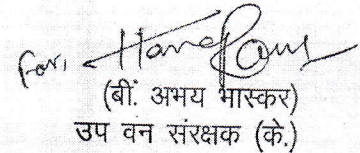 For,
(बीं. अभय भास्कर)
उप वन संरक्षक (के.)